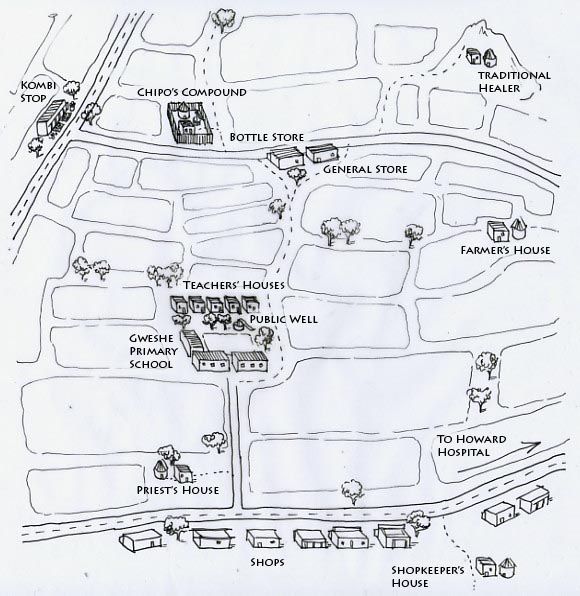 Kombi
Stop
Chipo's Compound
Traditional
Healer
Bottle Store
General Store
Farmer's House
Teachers' Houses
Public Well
Gweshe
Primary
School
To Howard
Hospital
Priest's House
Shops
Shopkeeper's
House